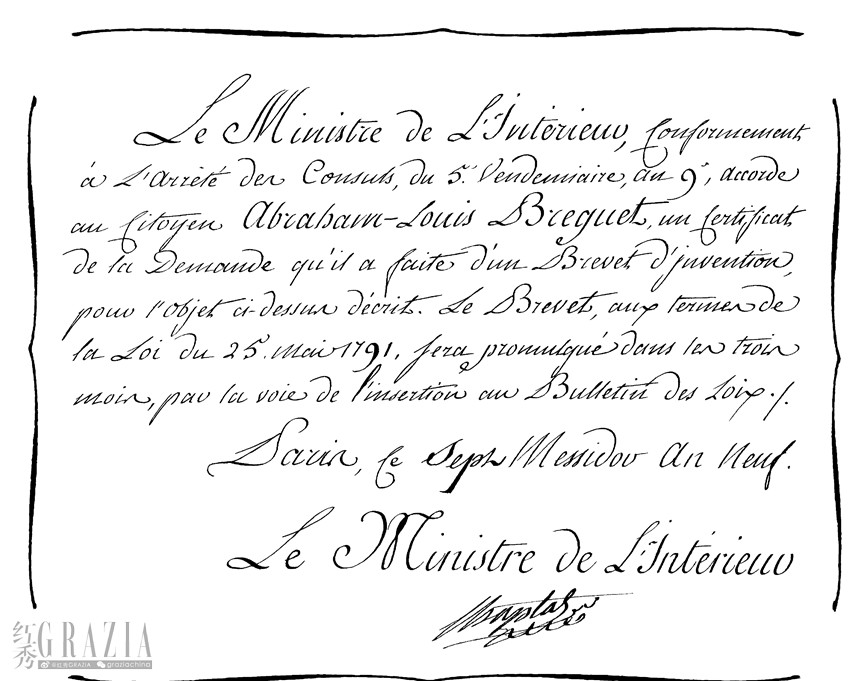 Le Ministre de L'Intérieur, Conformement
à L'Arrêté des Consuls, du 5. Vendemiaire, an 9e, accorde
au Citoyen Abraham-Louis Breguet, un Certificat
de la Demande qu'il a faite d'un Brevet d'jnvention,
pour l'objet ci-dessus décrit. Le Brevet, aux termes de
la Loi du 25. Mai 1791, sera promulgué dans les trois
mois, par la voie de l'insertion au Bulletin des Loix./.
Paris, Ce Sept Messidor An Neuf.
Le Ministre de L'Intérieur
Chaptal
红秀GRAZIA
@红秀GRAZIA graziachina